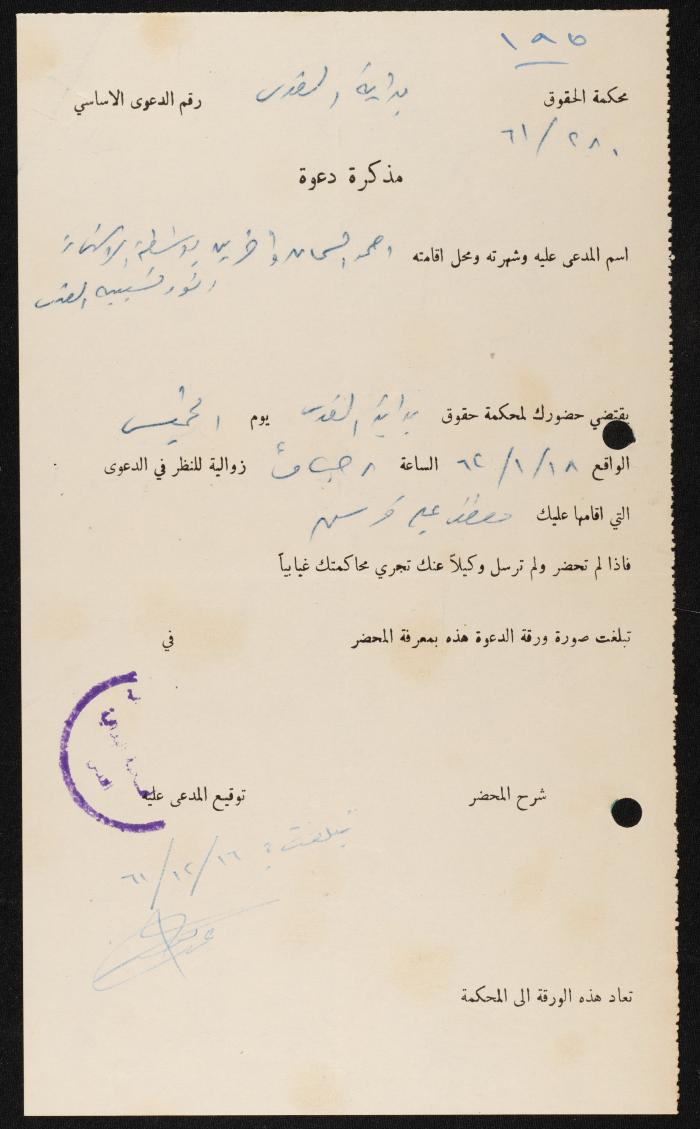 ١٩٥
محكمة الحقوق بداية القدس رقم الدعوى الاساسي
٦١/٢٨٠
مذكرة دعوة
اسم المدعى عليه وشهرته ومحل اقامته احمد السمان وآخرين بواسطة الاستاذ
انور نسيبه القدس
يقتضي حضورك لمحكمة حقوق بداية القدس يوم الخميس
الواقع ٦٢/١/١٨ الساعة ٨ صباحاً زوالية للنظر في الدعوى
التي اقامها عليك علي
فاذا لم تحضر ولم ترسل وكيلاً عنك تجري محاكمتك غيابياً
تبلغت صورة ورقة الدعوة هذه بمعرفة المحضر في
شرح المحضر توقيع المدعى عليه
تبلغت: ٦١/١٢/١٦
تعاد هذه الورقة الى المحكمة